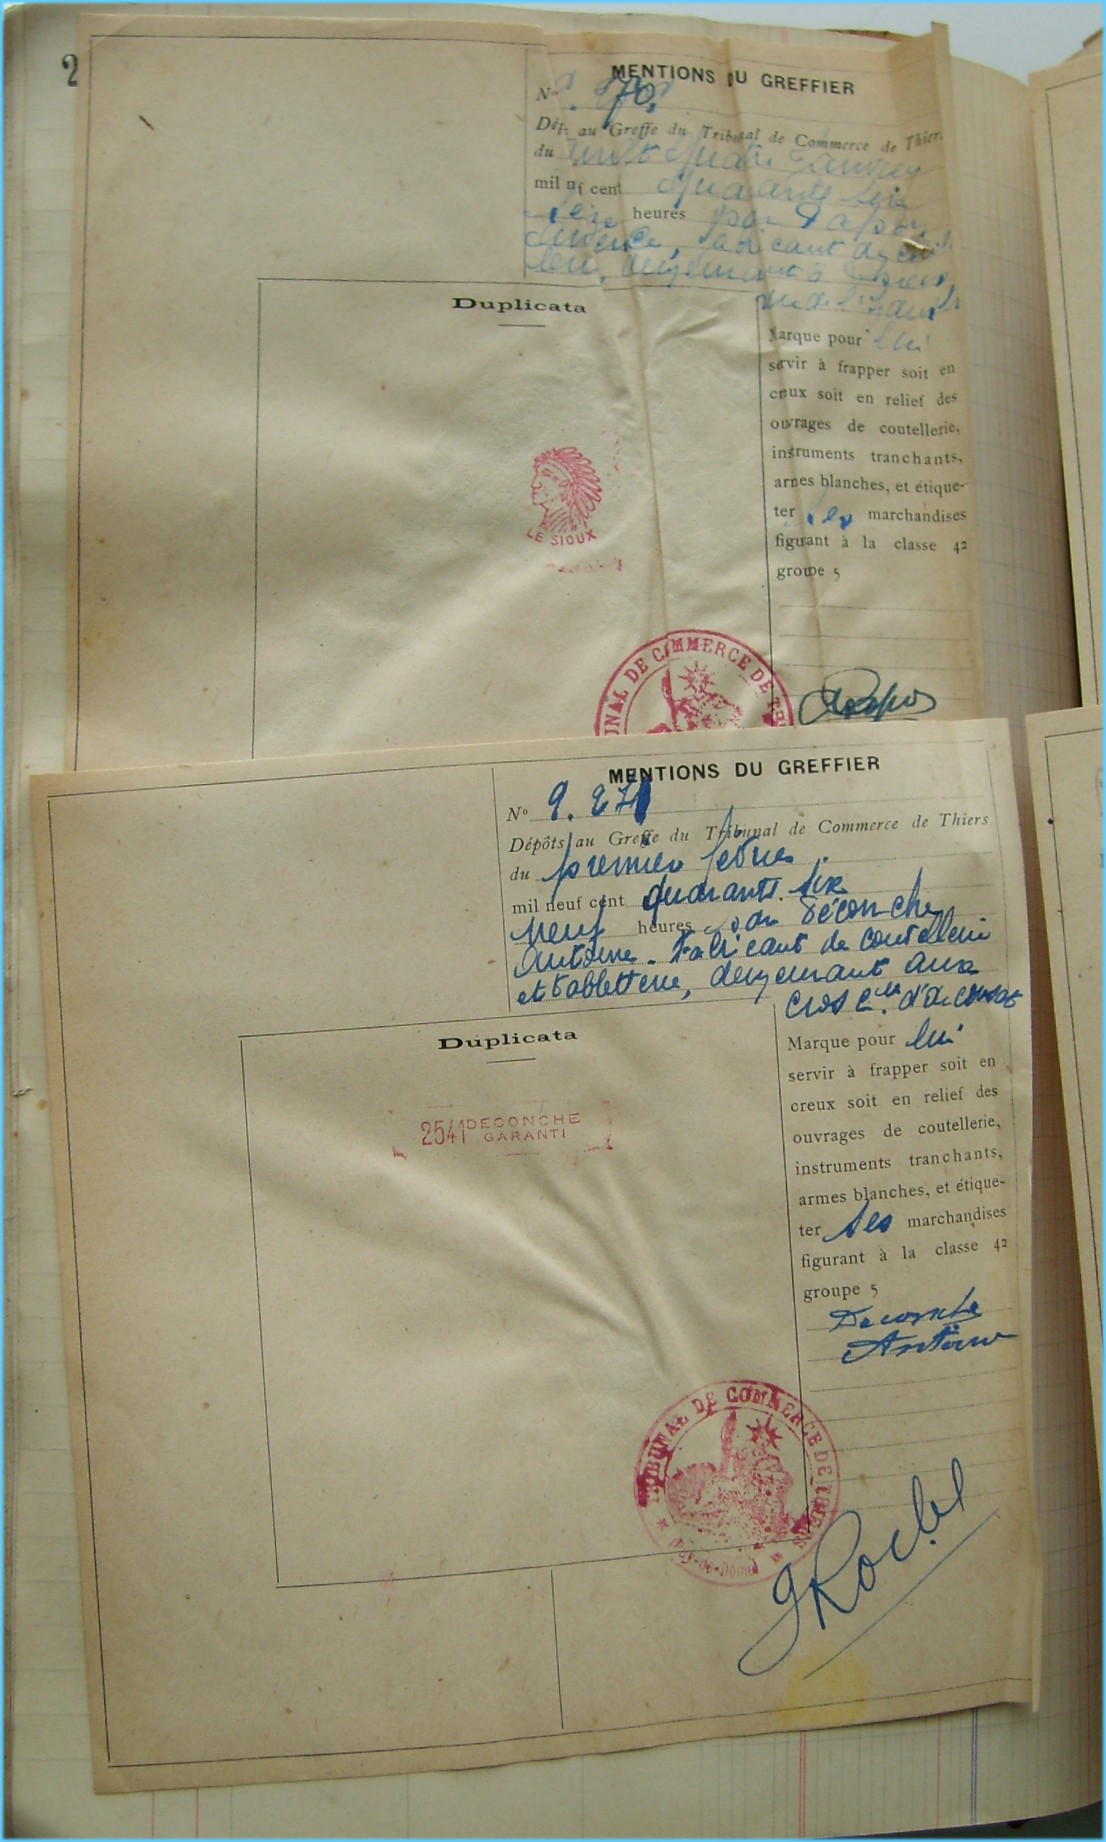 2
MENTIONS DU GREFFIER
No 270
Dép. au Greffe du Tribunal de Commerce de Thiers
du Vingt quatre Janvier
mil neuf cent quarante six
seize heures par
fabricant de
demeurant à Thiers,
Duplicata
Marque pour lui
servir à frapper soit en
creux soit en relief des
ouvrages de coutellerie,
instruments tranchants,
armes blanches, et étique-
ter ses marchandises
figurant à la classe 42
groupe 5
LE SIOUX
TRIBUNAL DE COMMERCE DE TH
MENTIONS DU GREFFIER
No 9.271
Dépôts au Greffe du Tribunal de Commerce de Thiers
du premier février
mil neuf cent quarante six
neuf heures par Déconche
Antoine. Fabricant de coutellerie
et tabletterie, demeurant aux
Cros Cne d'Arconsat
Duplicata
Marque pour lui
servir à frapper soit en
creux soit en relief des
ouvrages de coutellerie,
instruments tranchants,
armes blanches, et étique-
ter ses marchandises
figurant à la classe 42
groupe 5
2541 DECONCHE
GARANTI
Deconche
Antoine
TRIBUNAL DE COMMERCE DE THIERS
* PUY-DE-DÔME *